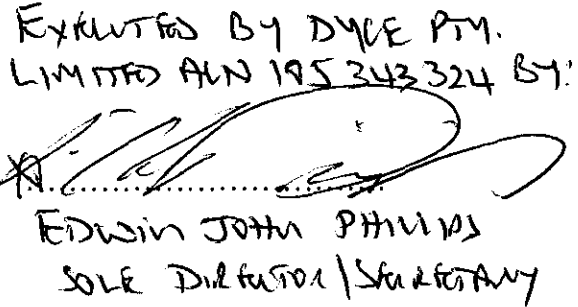 EXECUTED BY DYCE PTY.
LIMITED ACN 105 343 324 BY:
EDWIN JOHN PHILLIPS
SOLE DIRECTOR/SECRETARY